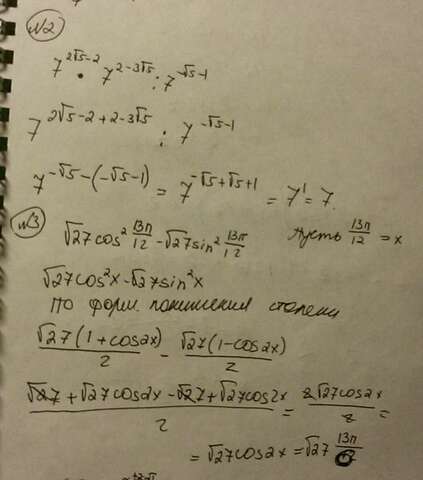 №2
7^{2√5-2} · 7^{2-3√5} : 7^{-√5-1}
7^{2√5-2+2-3√5} : 7^{-√5-1}
7^{-√5-(-√5-1)} = 7^{-√5+√5+1} = 7^1 = 7.
№3
√27cos²13π/12 - √27sin²13π/12 Пусть 13π/12 = x
√27cos²x - √27sin²x
по форм. понижения степени
√27(1+cos2x)/2 - √27(1-cos2x)/2
(√27 + √27cos2x - √27 + √27cos2x)/2 = 2√27cos2x/2 =
= √27cos2x = √27 13π/6